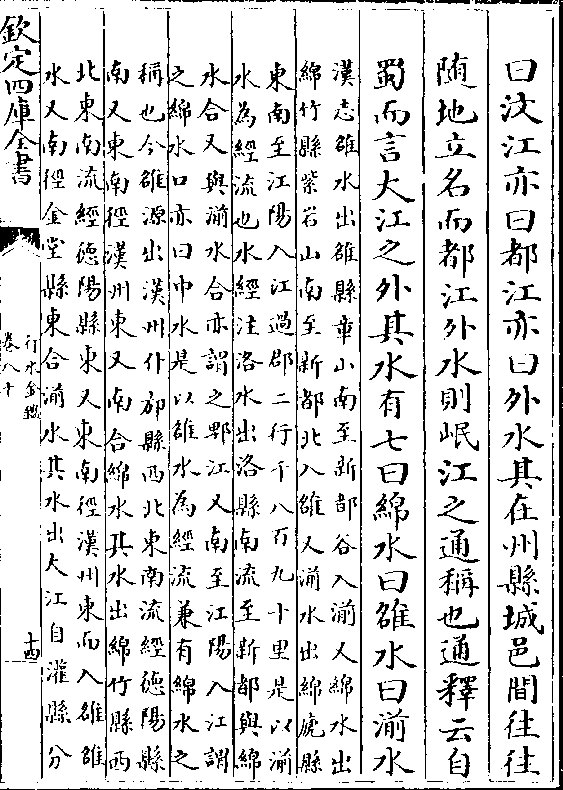 曰汶江亦曰都江亦曰外水其在州縣城邑間往往
隨地立名而都江外水則岷江之通稱也通釋云自
蜀而言大江之外其水有七曰綿水曰雒水曰湔水
漢志雒水出雒縣章山南至新都谷入湔又綿水出
綿竹縣紫岩山南至新都北入雒又湔水出綿虒縣
東南至江陽入江過郡二行千八百九十里是以湔
水為經流也水經注洛水出洛縣南流至新都與綿
水合又與湔水合亦謂之郫江又南至江陽入江謂
之綿水口亦曰中水是以雒水為經流兼有綿水之
稱也今雒源出漢州什邡縣西北東南流經德陽縣
南又東南徑漢州東又南合綿水其水出綿竹縣西
北東南流經德陽縣東又東南徑漢州東而入雒雒
水又南徑金堂縣東合湔水其水出大江自灌縣分
欽定四庫全書
行水金鑑
卷八十
十四